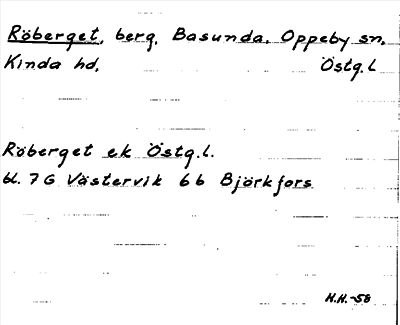 Röberget, berg, Basunda, Oppeby sn.
Kinda hd. Östg.L
Röberget ek Östg.l.
bl. 7G Västervik 6b Björkfors
H.H.-58